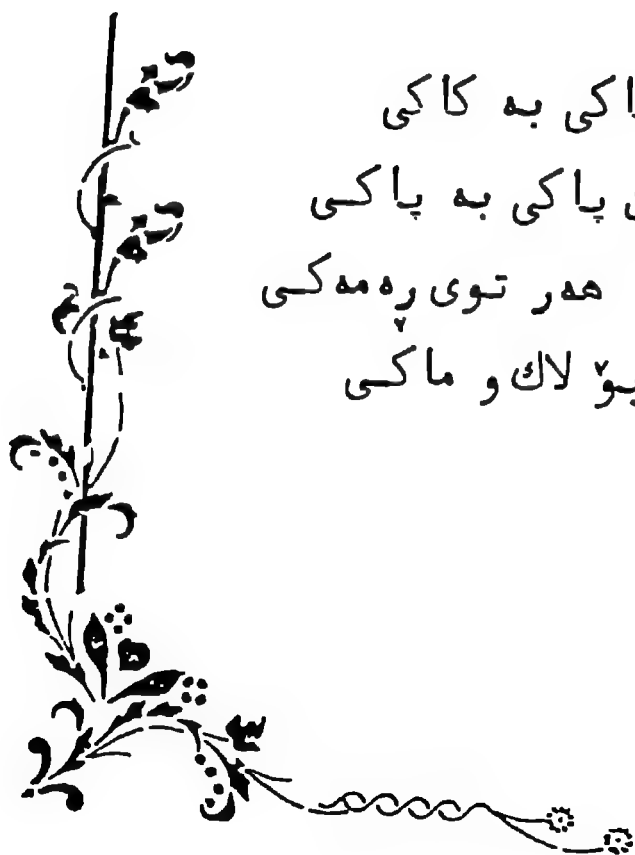 به کاکی
پاکی به پاکی
هەر توی ڕەمەکی
بۆ لاك و ماکی